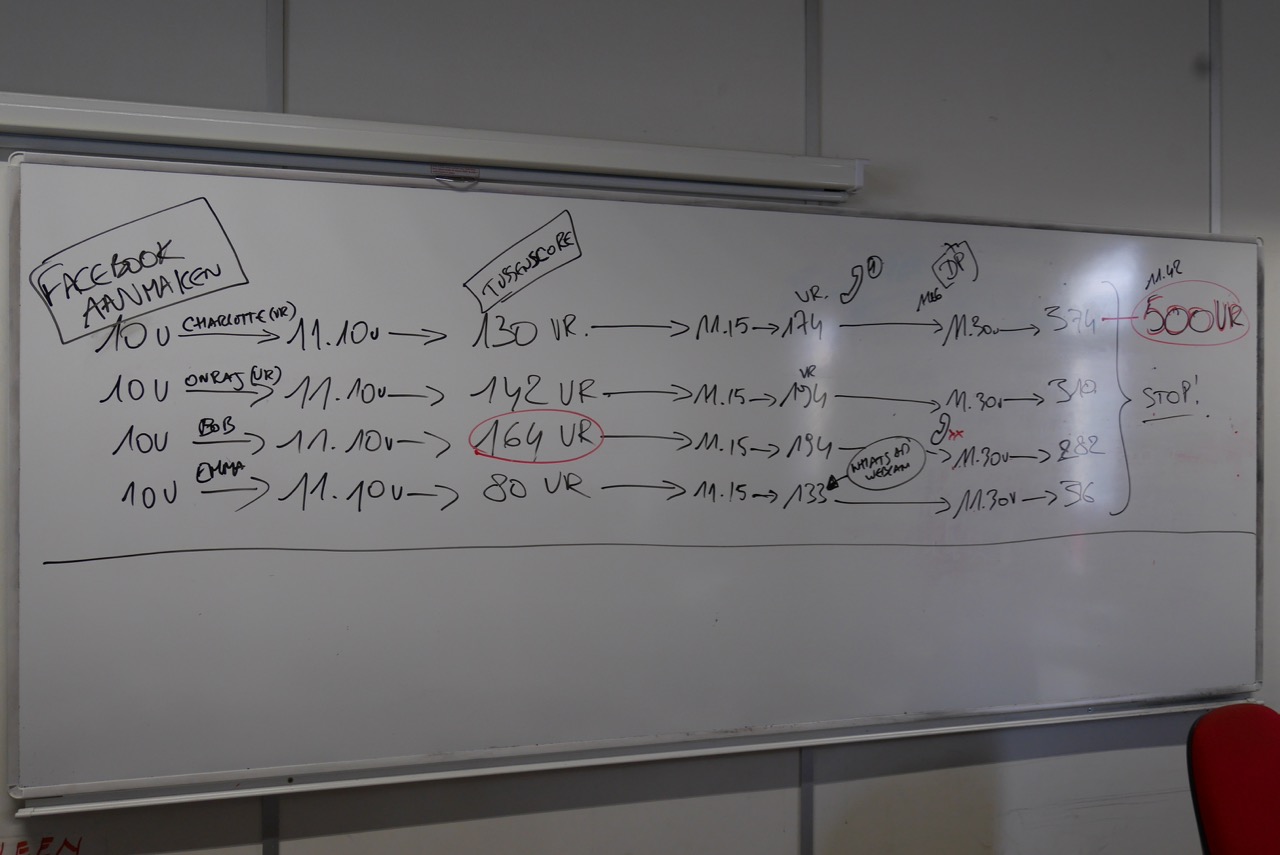 FACEBOOK
AANMAKEN
TUSSENSCORE
VR. 1 DP 11.42
10U CHARLOTTE (VR) 11.10u 130 VR. 11.15 174 11.30u 374 500VR
VR
10U (VR) 11.10u 142 VR 11.15 194 11.30u STOP!
10U BOB 11.10u 164 VR 11.15 194 11.30u 282
WEBCAM
10U EMMA 11.10u 80 VR 11.15 133 11.30u